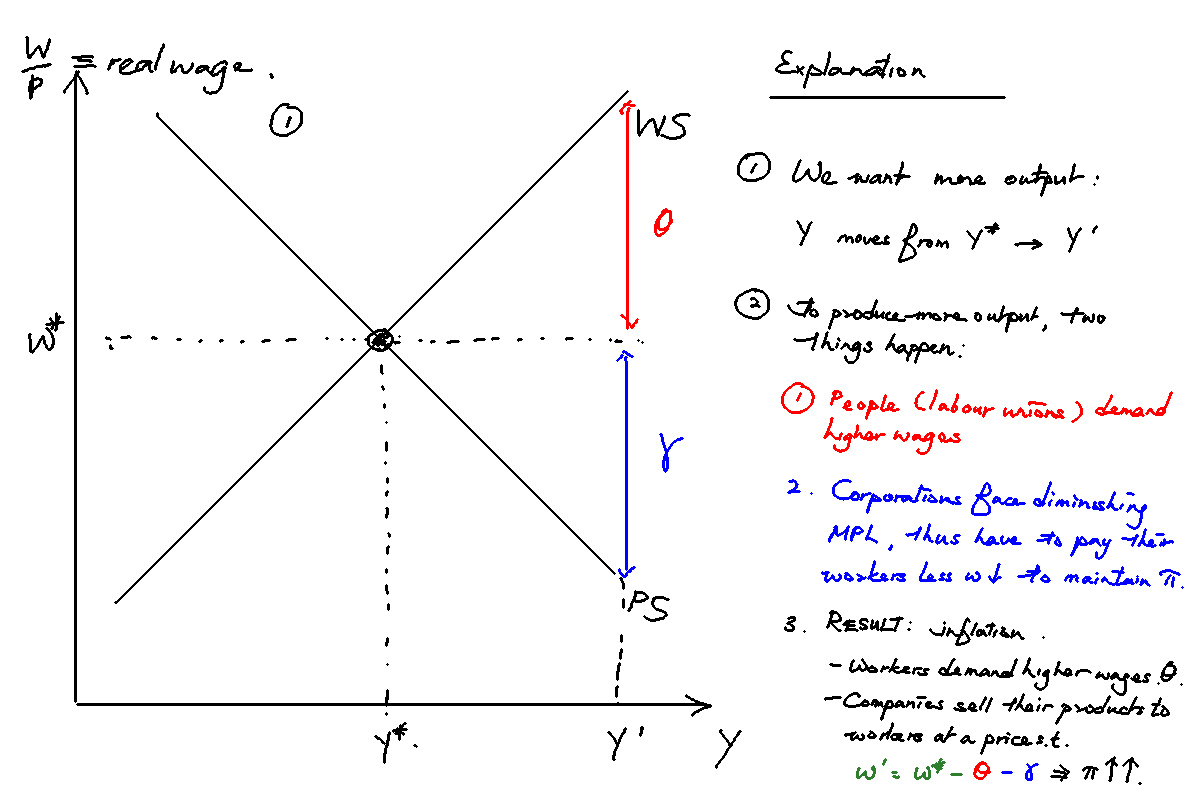 W/P ≡ real wage.
①
WS
θ
W*
γ
PS
Y*.
Y'
Y
Explanation
① We want more output:
Y moves from Y* → Y'
② To produce more output, two
things happen:
① People (labour unions) demand
higher wages
2. Corporations face diminishing
MPL, thus have to pay their
workers less w↓ to maintain π.
3. RESULT: inflation.
- Workers demand higher wages θ.
- Companies sell their products to
workers at a price s.t.
w' = w* - θ - γ ⇒ π↑↑.